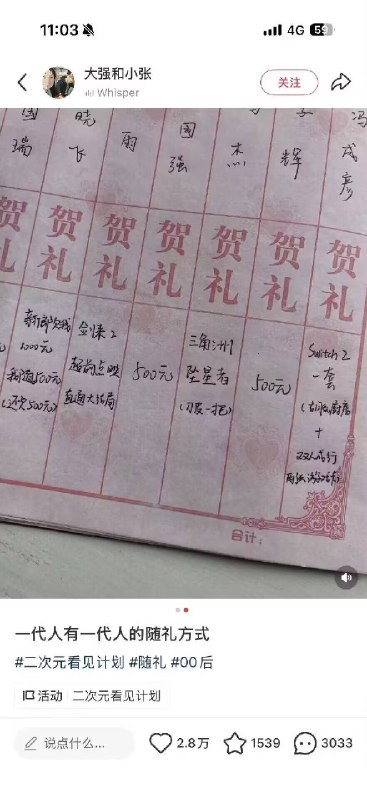 11:03
4G 59
大强和小张
Whisper
关注
国 晓 冯
瑞 飞 雨 国强 杰 辉 成彦
贺 贺 贺 贺 贺 贺 贺
礼 礼 礼 礼 礼 礼 礼
新郎欠我
1000元
我随500元
(还欠500元)
剑来2
超前点映
直通大结局
500元
三角洲
坠星者
(刀皮一把)
500元
Switch 2
一套
+
双人成行
合计:
一代人有一代人的随礼方式
#二次元看见计划 #随礼 #00后
活动 二次元看见计划
说点什么...
2.8万
1539
3033